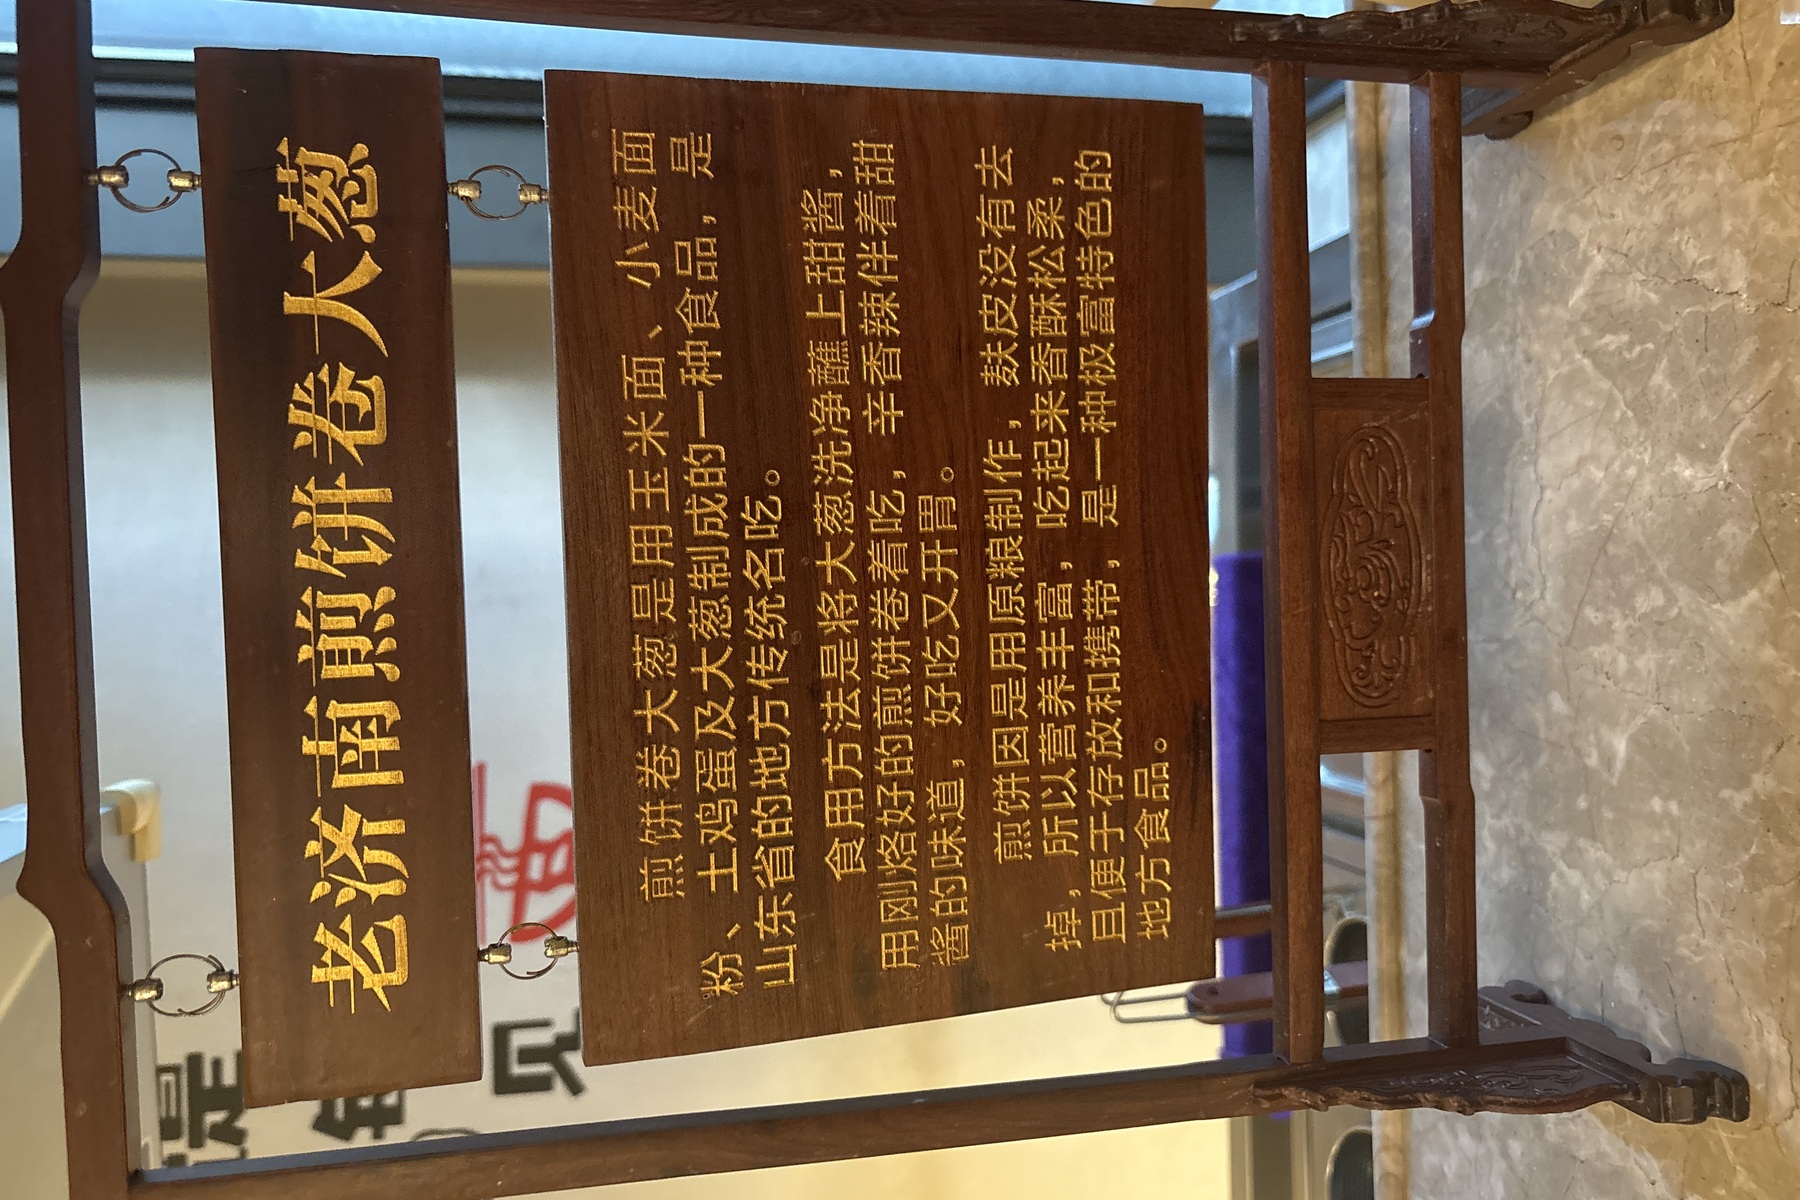 老济南煎饼卷大葱
煎饼卷大葱是用玉米面、小麦面
粉、土鸡蛋及大葱制成的一种食品，是
山东省的地方传统名吃。
食用方法是将大葱洗净蘸上甜酱，
用刚烙好的煎饼卷着吃，辛香辣伴着甜
酱的味道，好吃又开胃。
煎饼因是用原粮制作，麸皮没有去
掉，所以营养丰富，吃起来香酥松柔，
且便于存放和携带，是一种极富特色的
地方食品。